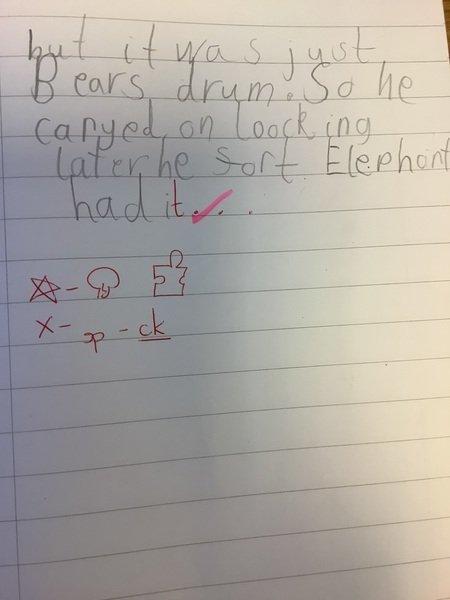 but it was just
Bears drum. So he
canyed on loocking
later he fort Elephant
had it...
x - sp - ck